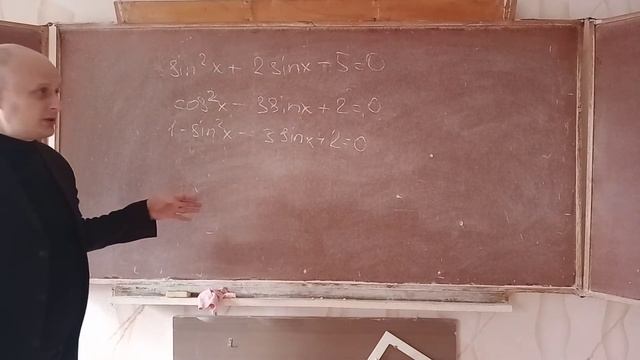 sin²x + 2 sinx - 5 = 0
cos²x - 3sinx + 2 = 0
1 - sin²x - 3 sinx + 2 = 0